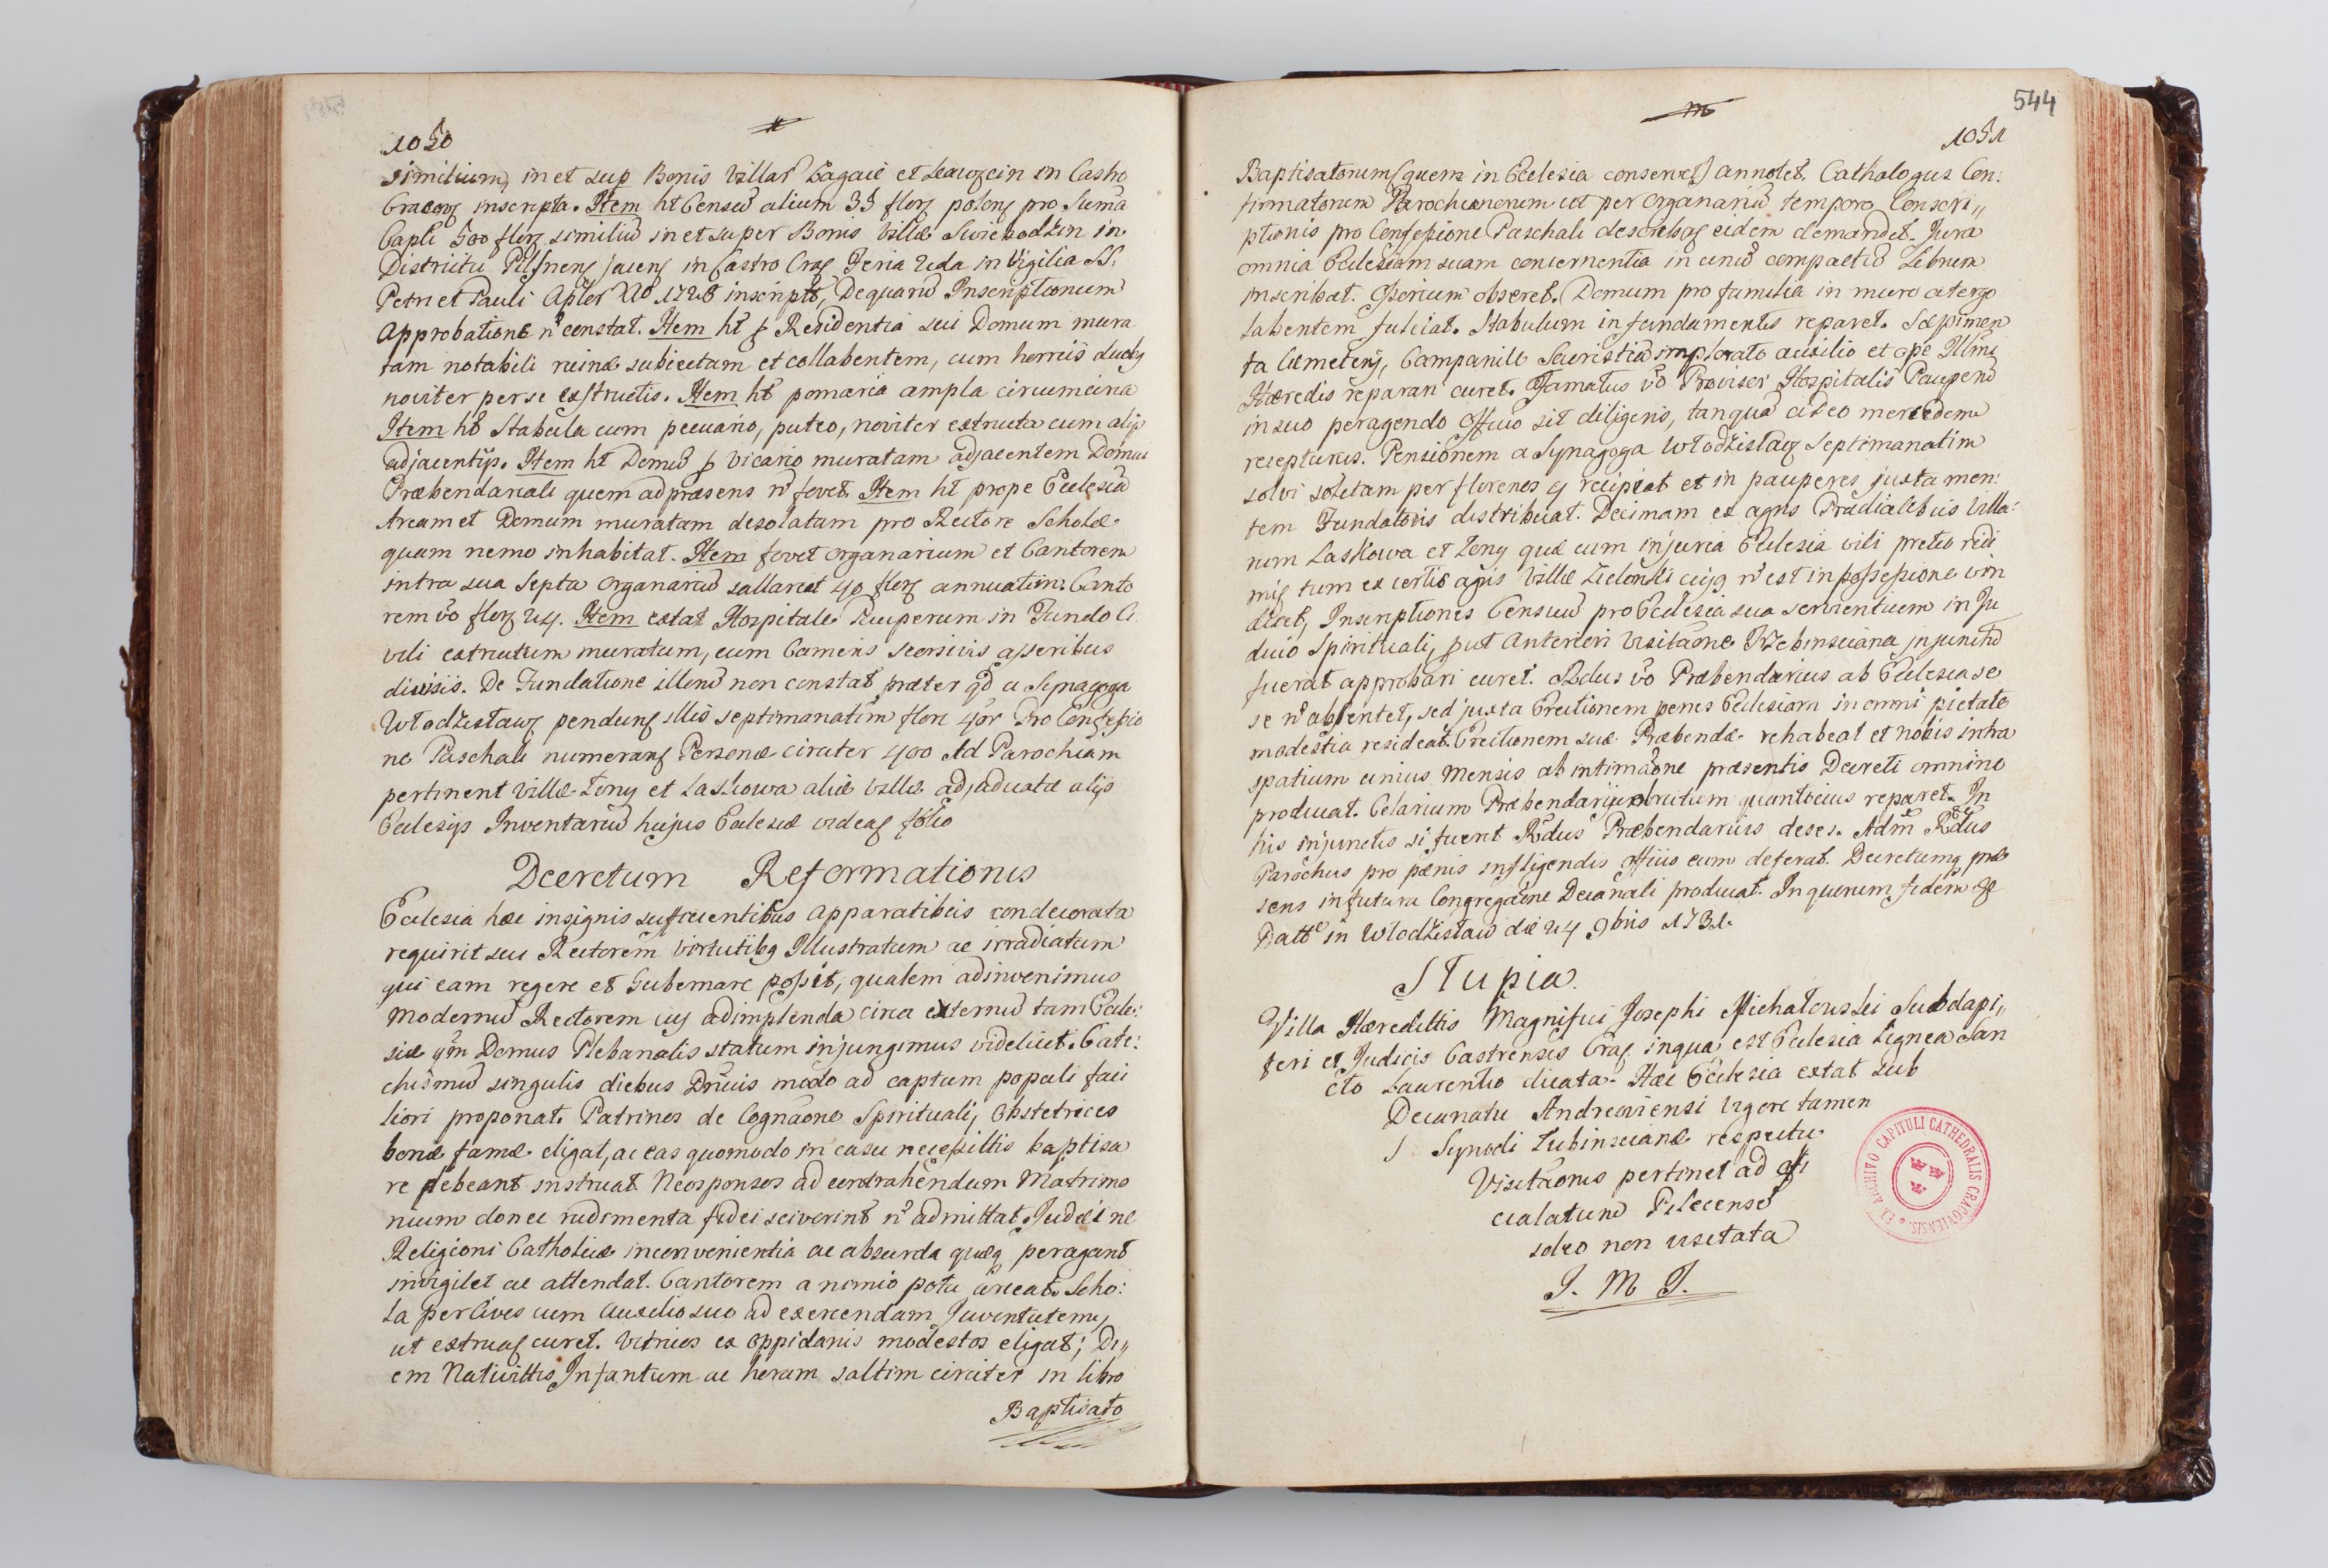 1050
similium, in et sup Bonis Villar Gagaie et in Castro
Cracov inscripta. Item ht Censū alium 35 flor polon pro Suma
Capli 500 flor similiū in et super Bonis Villæ Swiebodzin in
Districtu Pilsnen jacen in Castro Crac Feria 2da in Vigilia SS.
Petri et Pauli Apler Ao 1728 inscripto, De quarū Inscriptionum
Approbatione n constat. Item ht p Residentia sui Domum mura
tam notabili ruinæ subiectam et collabentem, cum horreis duobg
noviter per se exstructis. Item ht pomaria ampla circumcirca
Item ht Stabula cum pecuario, puteo, noviter extructa cum alijs
adjacentijs. Item ht Domū p Vicario muratam adjacentem Domui
Præbendariali quem ad præsens n fovet. Item ht prope Ecclesiā
Aream et Domum muratam desolatam pro Rectore Scholæ
quam nemo inhabitat. Item fovet Organarium et Cantorem
intra sua Septa Organariū sallareat 40 flor annuatim. Canto
rem vo flor 24. Item extat Hospitale Pauperum in Fundo Ci
vili extructum muratum, cum Cameris seorsivis asseribus
divisis. De Fundatione illius non constat præter qd a Synagoga
Włodzisław pendung illis septimanatim flor 4or Pro Confessio
ne Paschali numerang Personæ circiter 400 Ad Parochiam
pertinent Villæ Łony et Laskowa aliæ Villæ adjaduatæ alijs
Ecclesijs Inventariū hujus Ecclesiæ videag folio
Decretum Reformationis
Ecclesia hæc insignis sufficientibus apparatibus condecorata
requirit sui Rectorem virtutibg Illustratum ac irradiatum
qui eam regere et Gubernare possit, qualem adinvenimus
Modernū Rectorem cui adimplenda circa externū tam Eccle:
siæ qm Domus Plebanalis statum injungimus videlicet. Cate:
chismū singulis diebus Dnicis modo ad captum populi faci
liori proponat. Patrinos de Cognaone Spirituali, Obstetrices
bonæ famæ eligat, ac eas quomodo in casu necessittis baptisa
re debeant instruat. Neosponsos ad contrahendum Matrimo
nium donec rudimenta fidei sciverint n admittat. Judæi ne
Religioni Catholicæ inconvenientia ac absurda quæq peragant
invigilet ac attendat. Cantorem a nimio potu arceat. Scho:
la per Cives cum Auxilio suo ad exercendam Juventutem,
ut extruag curet. Vitricos ex oppidanis modestos eligat; Di,,
em Nativittis Infantum ac horam saltim circiter in libro
Baptisato
544
1051
Baptisatorum (quem in Ecclesia conservet) annotet. Cathalogus Con:
firmatorum Parochianorum ut per Organariū tempore Conscri,,
ptionis pro Confessione Paschali describag eidem demandet. Jura
omnia Ecclesiam suam concernentia in unū compactū Librum
inscribat. Ossorium obseret. Domum pro familia in muro a tergo
labentem fulciat. Stabulum in fundamentis reparet. Sæpimen
ta Cæmeterij, Campanile Sacristiā implorato auxilio et ope Illmi
Hæredis reparari curet. Famatus vo Provisor Hospitalis Pauperū
in suo peragendo Officio sit diligens, tanquā a Deo mercedem
recepturus. Pensionem a Synagoga Włodzisław Septimanatim
solvi solitam per florenos 4 recipiat et in pauperes juxta men:
tem Fundatoris distribuat. Decimam ex agris Prædialibus Villa:
rum Laskowa et Łony quæ cum injuria Ecclesiæ vili pretio redi
mig tum ex certis agris Villæ Zielonki cujg n est in possessione vin
dicet, Inscriptiones Censuū pro Ecclesia sua servientium in Ju
dicio Spirituali, put Anteriori Visitaone Trzebinsciana injunctū
fuerat approbari curet. Rdus vo Præbendarius ab Ecclesia se
se n absentet, sed juxta Erectionem penes Ecclesiam in omni pietate
modestia resideat. Erectionem suæ Præbendæ rehabeat et nobis intra
spatium unius Mensis ab intimaone præsentis Decreti omnino
producat. Celarium Præbendarij obrutum quantocius reparet. In
his injunctis si fuerit Rdus Præbendarius deses. Adm Rdus
Parochus pro pænis infligendis Officio eum deferat. Decretumq præ
sens in futura Congregaone Decanali producat. In quorum fidem &
Datt in Włodzisław die 24 9bris 1731.
Słupia.
Villa Hæredittis Magnifici Josephi Michałowski Subdapi,,
feri et Judicis Castrensis Crac in qua est Ecclesia Lignea San
cto Laurentio dicata. Hæc Ecclesia extat sub
Decanatu Andreoviensi vigore tamen
Synodi Łubinscianæ respectu
Visitaonis pertinet ad offi
cialatum Pilecensē
ideo non visitata
J. M J.
EX ARCHIVO CAPITULI CATHEDRALIS CRACOVIENSIS